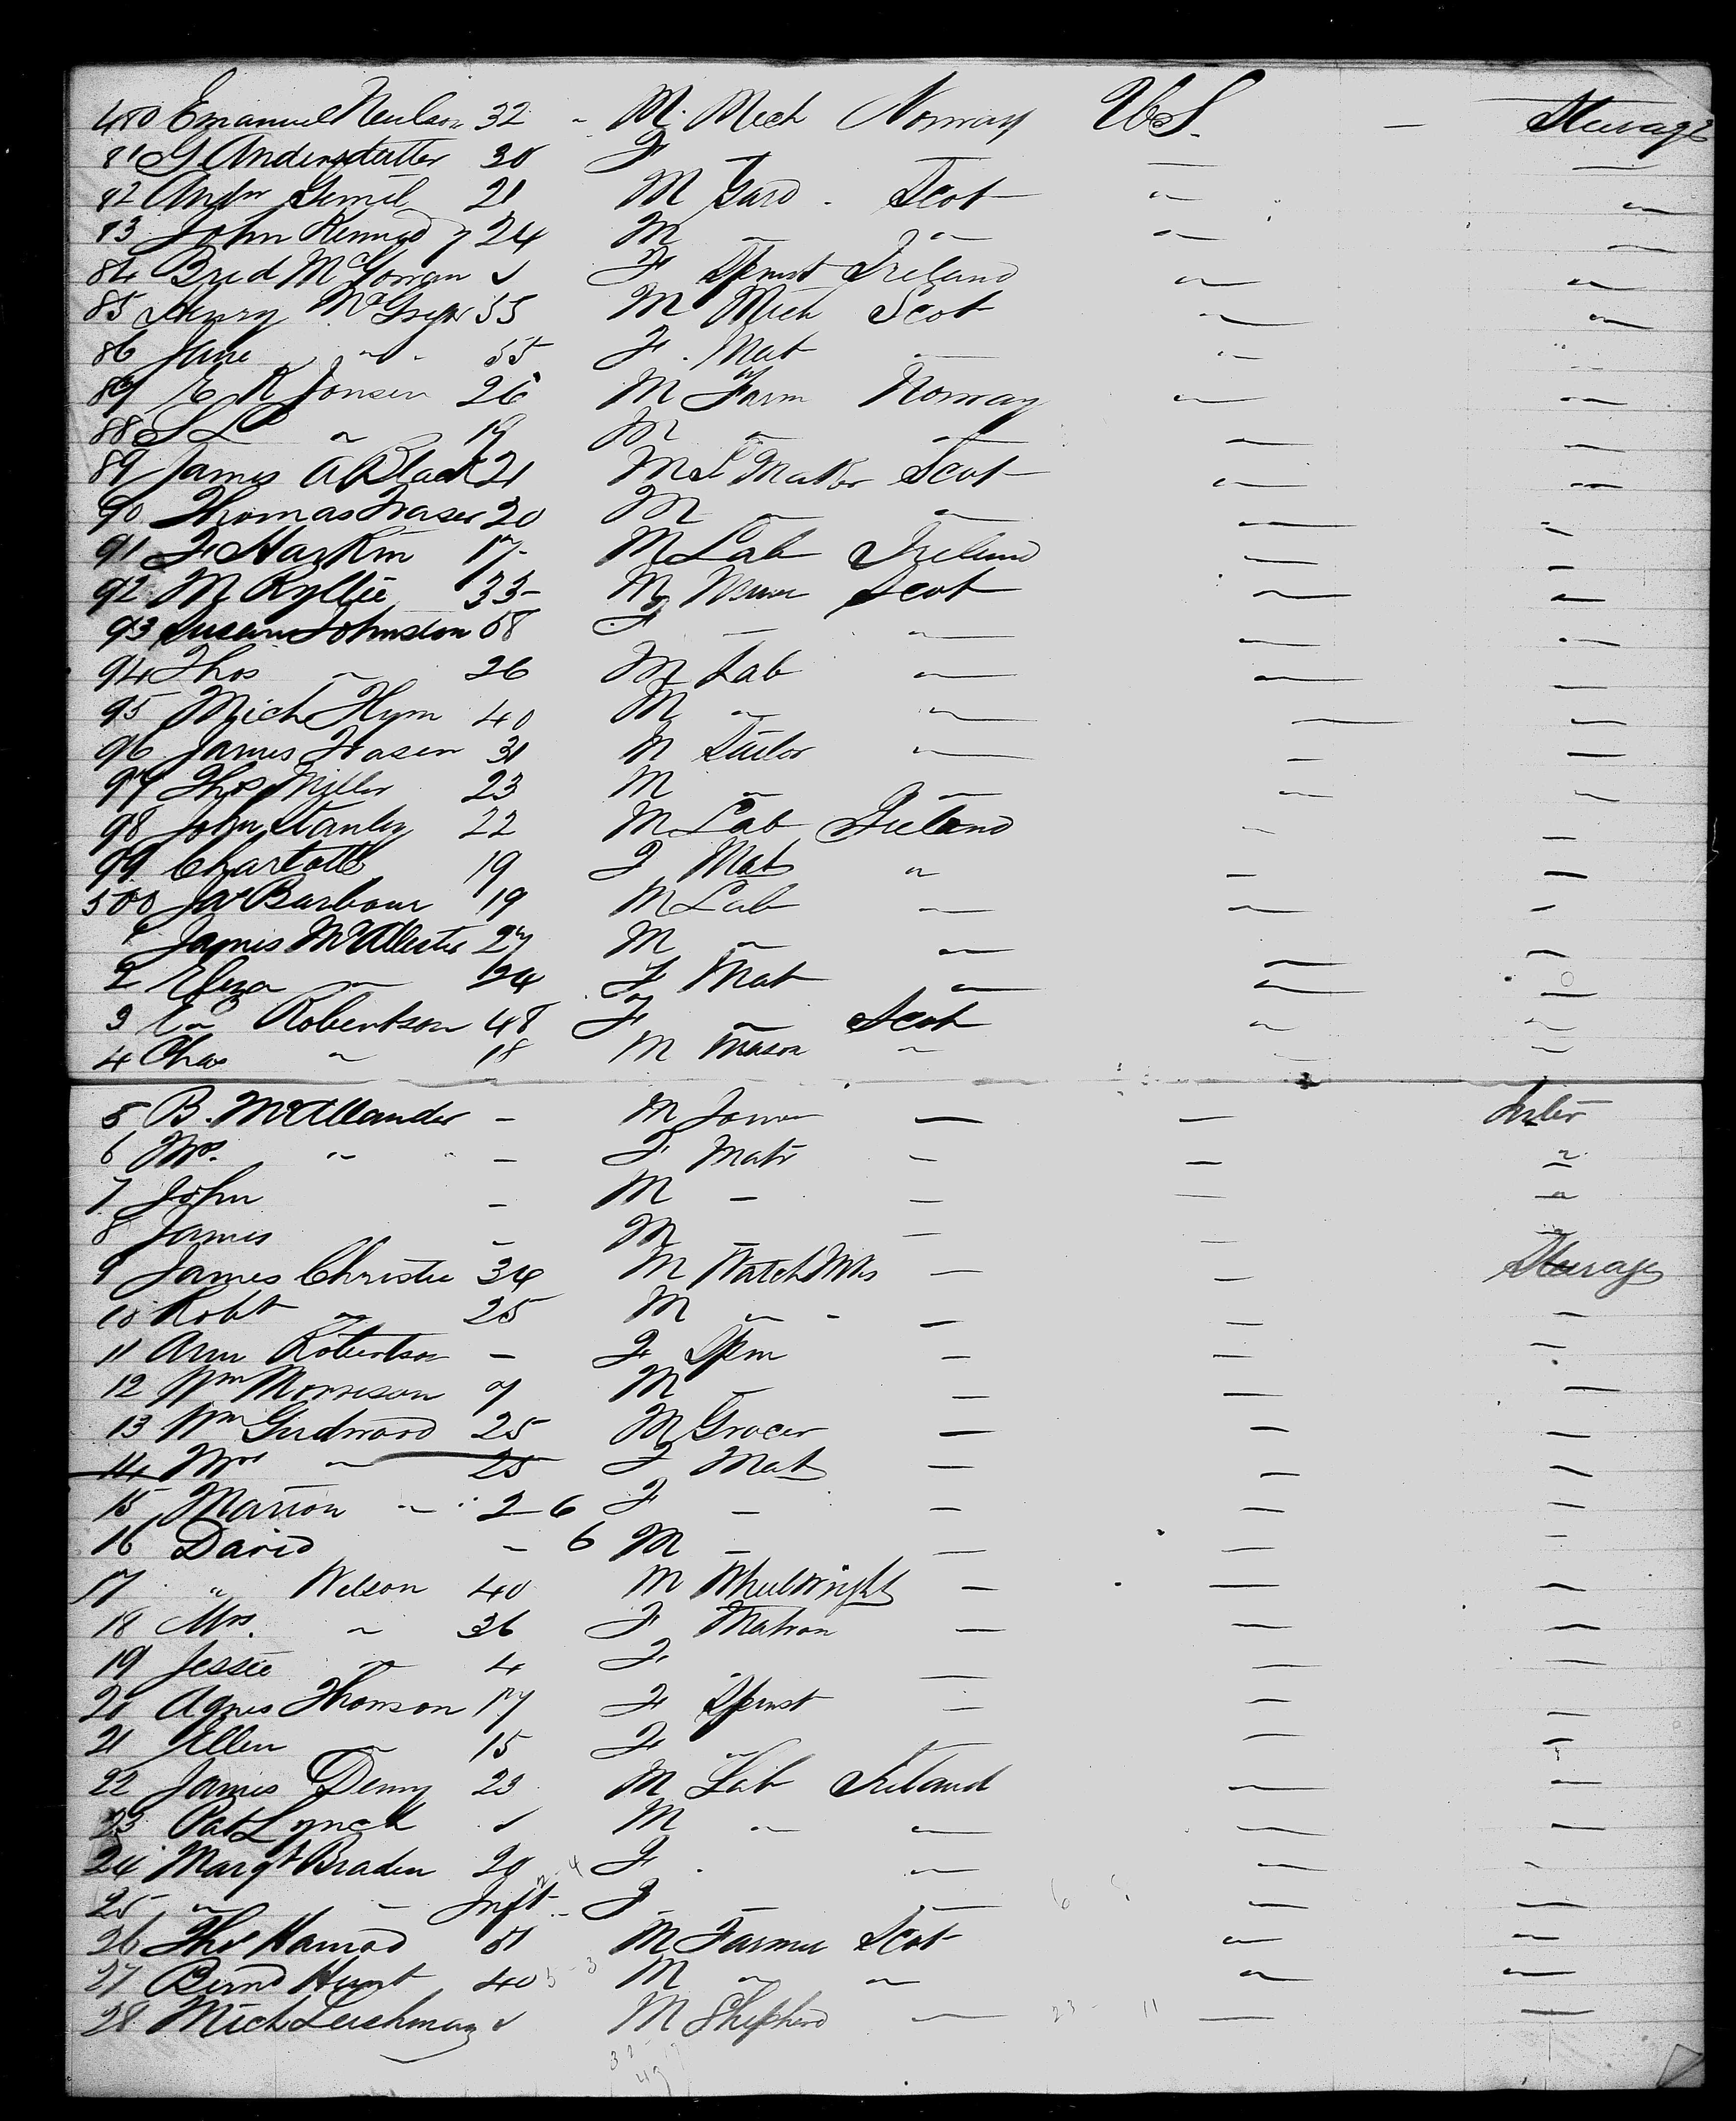 480 Emanuel Neulson 32 " M. Mech Norway U.S. — Steerage
81 G. Andersdatter 30 F — — —
82 Andw Gemil 21 M Gard. Scot " "
83 John Kennedy 24 M " " " "
84 Brid McGowan ✓ F Spinst Ireland " "
85 Henry McGregor 55 M Mech Scot " "
86 Jane " 55 F. Mat — " "
87 E R Jonsen 26 M Farm Norway " "
88 S L " 19 M " " " "
89 James A Black 21 M Maker Scot " "
90 Thomas Fraser 20 M " " " "
91 F Harkin 17 M Lab Ireland " "
92 M Kyllie 35 M Scot " "
93 Susan Johnston 58 F — " " "
94 Thos " 26 M Lab " " "
95 Mich Hym 40 M " " " "
96 James Fraser 31 M Tailor " " "
97 Thos Miller 23 M " " " "
98 John Stanley 22 M Lab Ireland " —
99 Charlotte 19 F Mat " — —
500 Jas Barbour 19 M Lab " " —
1 James McAllister 27 M " " " "
2 Eliza " 24 F Mat " " "
3 Robertson 48 F " Scot " "
4 Chas " 18 M Mason " — "
5 B. McAllander — M Joiner — — Inter
6 Mrs. " — F Matr — — "
7 John — M — — — "
8 James — M — — — "
9 James Christie 34 M Watch Mkr — — Steerage
10 Robt " 25 M " — — —
11 Ann Robertson — F Spin — — —
12 Wm Morrison 7 M — — — —
13 Wm Girdwood 25 M Grocer — — —
14 Mrs " 25 F Mat — — —
15 Marion " 2-6 F — — — —
16 David — 6 M — — — —
17 " Wilson 40 M Wheelwright — — —
18 Mrs. " 36 F Matron — — —
19 Jessie " 4 F — — —
20 Agnes Thomson 17 F Spinst — — —
21 Ellen " 15 F " — —
22 James Denny 23 M Lab Ireland — —
23 Pat Lynch ✓ M " " — —
24 Margt Braden 20 F " " —
25 " — Inft F — — — —
26 Thos 51 M Farmer Scot " "
27 Bernd Hunt 40 M " " " "
28 Mich Leishman ✓ M Shepherd — — —